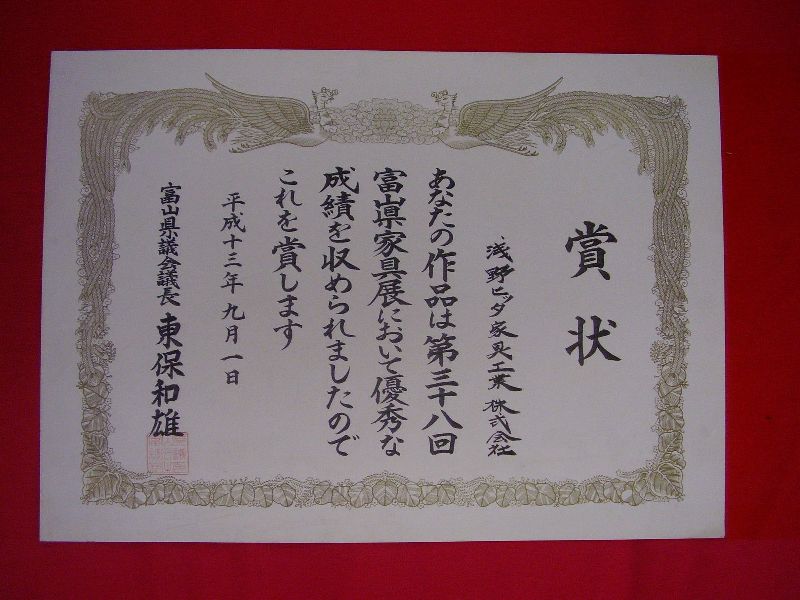 賞状
浅野ヒッダ家具工業株式会社
あなたの作品は第三十八回
富山県家具展において優秀な
成績を収められましたので
これを賞します
平成十三年九月一日
富山県議会議長 東保和雄